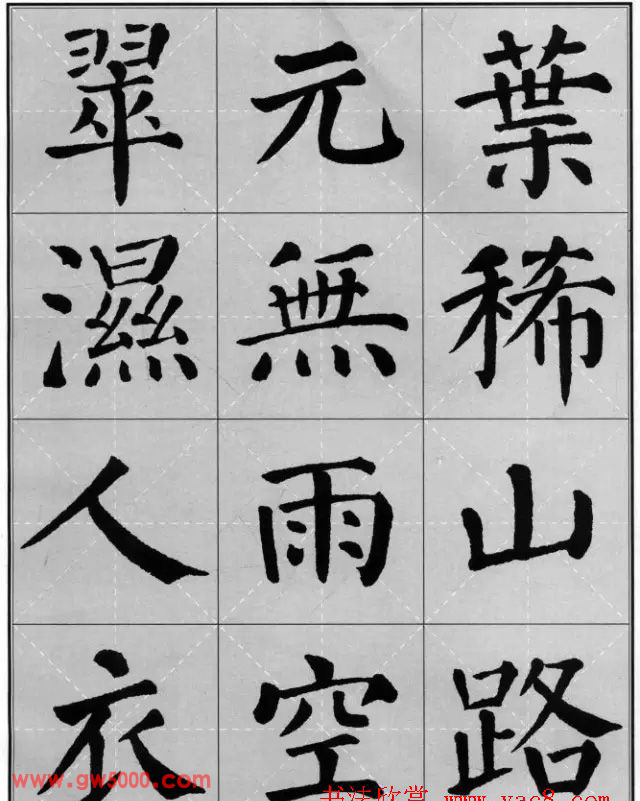 葉稀山路
元無雨空
翠濕人衣
www.gw5000.com
书法欣赏 www.yac8.com